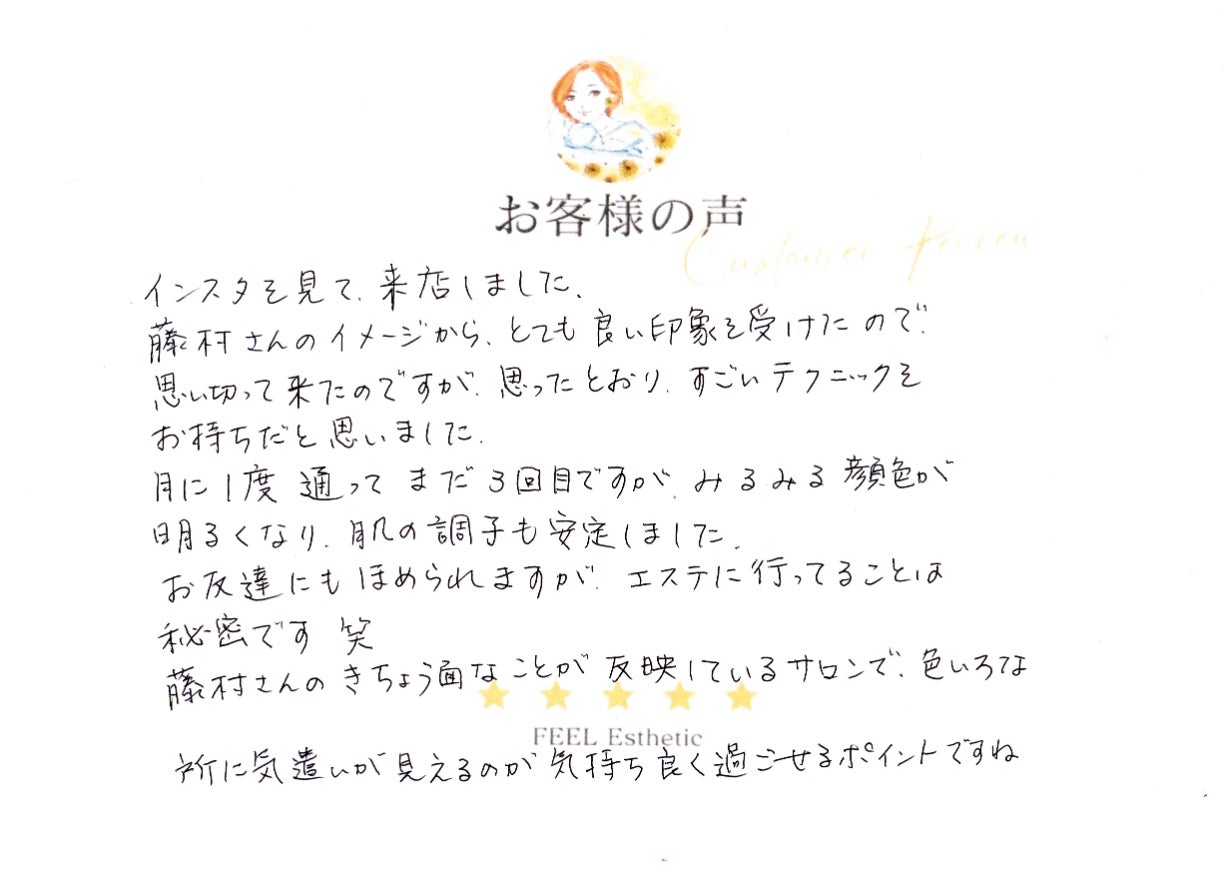 お客様の声
Customer Review
インスタを見て、来店しました、
藤村さんのイメージから、とても良い印象を受けたので、
思い切って来たのですが、思ったとおり、すごいテクニックを
お持ちだと思いました、
月に1度通ってまだ3回目ですが、みるみる顔色が
明るくなり、肌の調子も安定しました、
お友達にもほめられますが、エステに行ってることは
秘密です 笑
藤村さんのきちょう面なことが反映しているサロンで、色いろな
FEEL Esthetic
所に気遣いが見えるのが気持ち良く過ごせるポイントですね